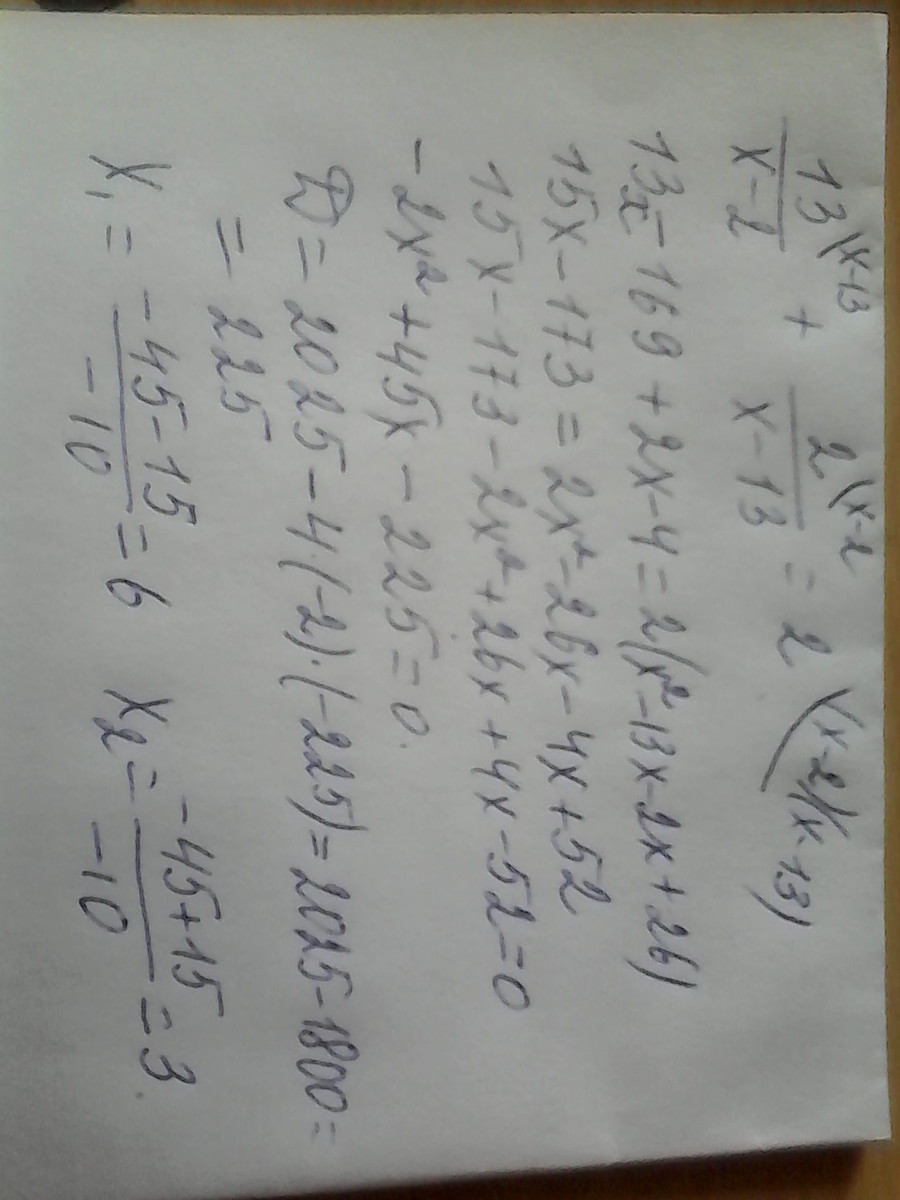 13\(x-13 / x-2 + 2\(x-2 / x-13 = 2 \(x-2)(x-13)
13x-169+2x-4=2(x²-13x-2x+26)
15x-173=2x²-26x-4x+52
15x-173-2x²+26x+4x-52=0
-2x²+45x-225=0.
D=2025-4(-2)·(-225)=2025-1800=
=225
x₁= -45-15 / -10 =6 x₂= -45+15 / -10 =3.